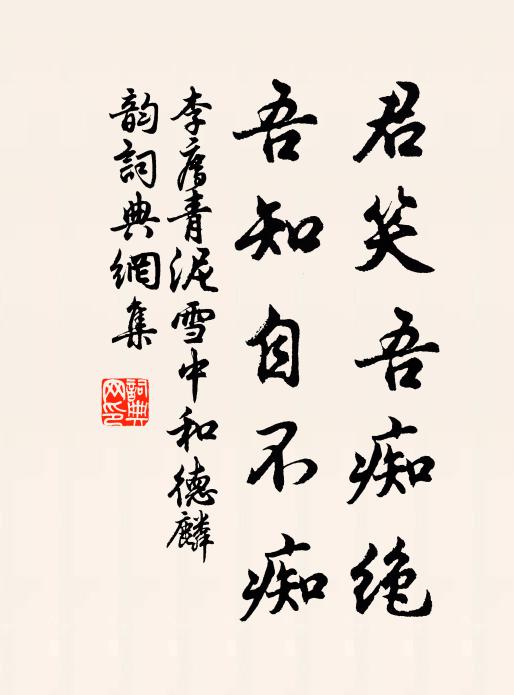 君笑吾痴绝
吾知自不痴
李廌青泥雪中和德麟
韵詞典網集
詞典网印